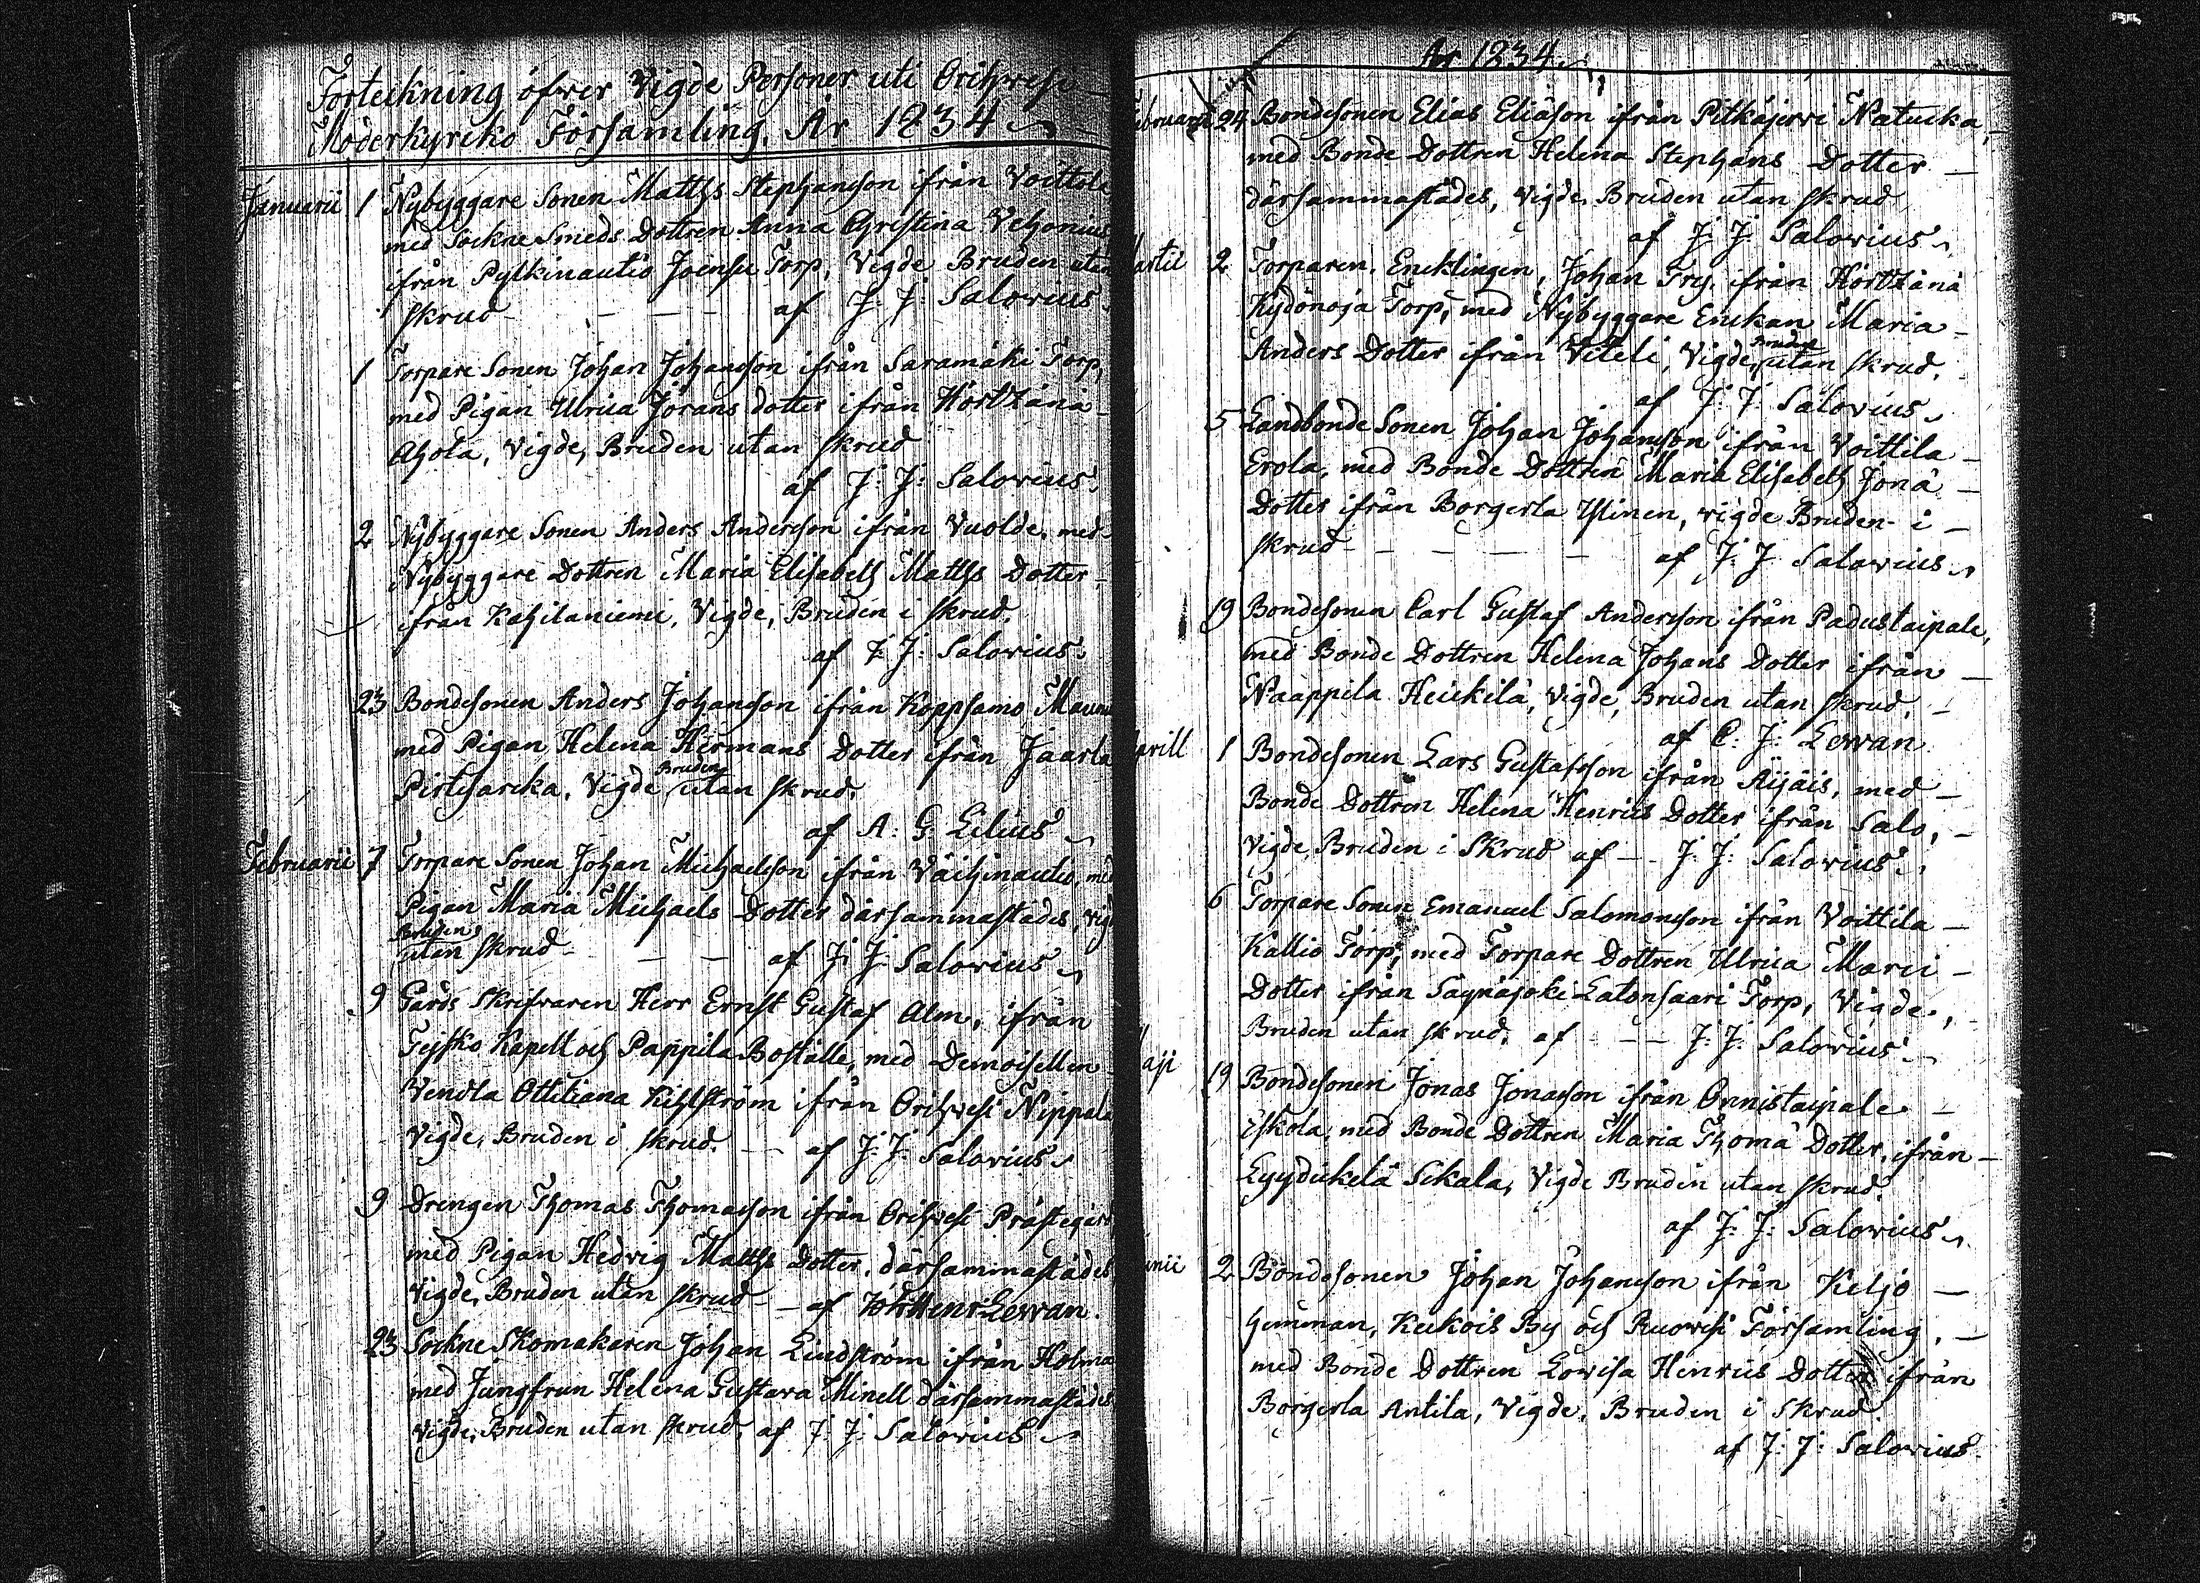 Förteckning öfver Vigde Personer uti Orihvesi
Moderkyrko Församling. År 1834
Januarii 1 Nybyggare Sonen Matths Stephansson ifrån Voittila
med Sockne Smeds Dottren Anna Christina Vehonius
ifrån Pylkinautio Joensu Torp, Vigde Bruden utan
skrud - - - - af J: J: Salovius.
1 Torpare Sonen Johan Johansson ifrån Saramäki Torp,
med Pigan Ulrica Jörans dotter ifrån Hörtzänä
Ahola, Vigde, Bruden utan skrud
af J: J: Salovius.
2 Nybyggare Sonen Anders Andersson ifrån Vuolde, med
Nybyggare Dottren Maria Elisabeth Matths Dotter
ifrån Kahilaniemi, Vigde, Bruden i skrud.
af J: J: Salovius.
23 Bondesonen Anders Johansson ifrån Koppsamo
med Pigan Helena Hermans Dotter ifrån Jaarla
Pirtisarka, Vigde Bruden utan skrud.
af A: G: Lilius
Februarii 7 Torpare Sonen Johan Michaelsson ifrån Väihinautio, med
Pigan Maria Michaels Dotter därsammastädes, vigde
Bruden utan skrud - - - af J: J: Salovius
9 Gårds Skrifvaren Herr Ernst Gustaf Alm, ifrån
Tejsko Kapell och Pappila Boställe, med Demoisellen
Vendla Ottiliana Kihlström ifrån Orihvesi Nippala
Vigde, Bruden i skrud. - - af J: J: Salovius
9 Drengen Thomas Thomasson ifrån Orihvesi Prästegård
med Pigan Hedvig Matths Dotter, därsammastädes
Vigde, Bruden utan skrud - - af Levan.
23 Sockne Skomakaren Johan Lindström ifrån Holma
med Jungfrun Helena Gustava Minell därsammastädes
Vigde, Bruden utan skrud, af J: J: Salovius
År 1834
Februarii 24 Bondesonen Elias Eliäson ifrån Pitkäjervi Natucka,
med Bonde Dottren Helena Stephans Dotter
därsammastädes, Vigde, Bruden utan skrud
af J: J: Salovius
artii 2 Torparen, Encklingen, Johan Fry, ifrån Hörtzänä
Kydönoja Torp, med Nybyggare Enckan Maria
Anders Dotter ifrån Viteli, Vigde, Bruden utan skrud.
af J: J: Salovius
5 Landbonde Sonen Johan Johansson ifrån Voittila
Erola, med Bonde Dottren Maria Elisabeth Jonä
Dotter ifrån Borgerla Ylinen, vigde Bruden i
skrud - - - - af J: J: Salovius
19 Bondesonen Carl Gustaf Andersson ifrån Padustaipale,
med Bonde Dottren Helena Johans Dotter ifrån
Naappila Heickilä, Vigde, Bruden utan skrud.
af C: J: Levan
prill 1 Bondesonen Lars Gustafsson ifrån Äijäis, med
Bonde Dottren Helena Henrics Dotter ifrån Salo,
Vigde, Bruden i Skrud af - - J: J: Salovius
6 Torpare Sonen Emanuel Salomonsson ifrån Voittila
Kallio Torp, med Torpare Dottren Ulrica Marci
Dotter ifrån Säynäjoki Latonsaari Torp, Vigde,
Bruden utan skrud, af - - - J: J: Salovius
aji 19 Bondesonen Jonas Jonasson ifrån Onnistaipale
Eskola, med Bonde Dottren Maria Thomä Dotter, ifrån
Lyydickälä Sikala, Vigde Bruden utan skrud.
af J: J: Salovius
unii 2 Bondesonen Johan Johansson ifrån Keljo
himman, Kuckois By och Ruovesi Församling,
med Bonde Dottren Lovisa Henrics Dotter ifrån
Borgerla Antila, Vigde, Bruden i skrud.
af J: J: Salovius